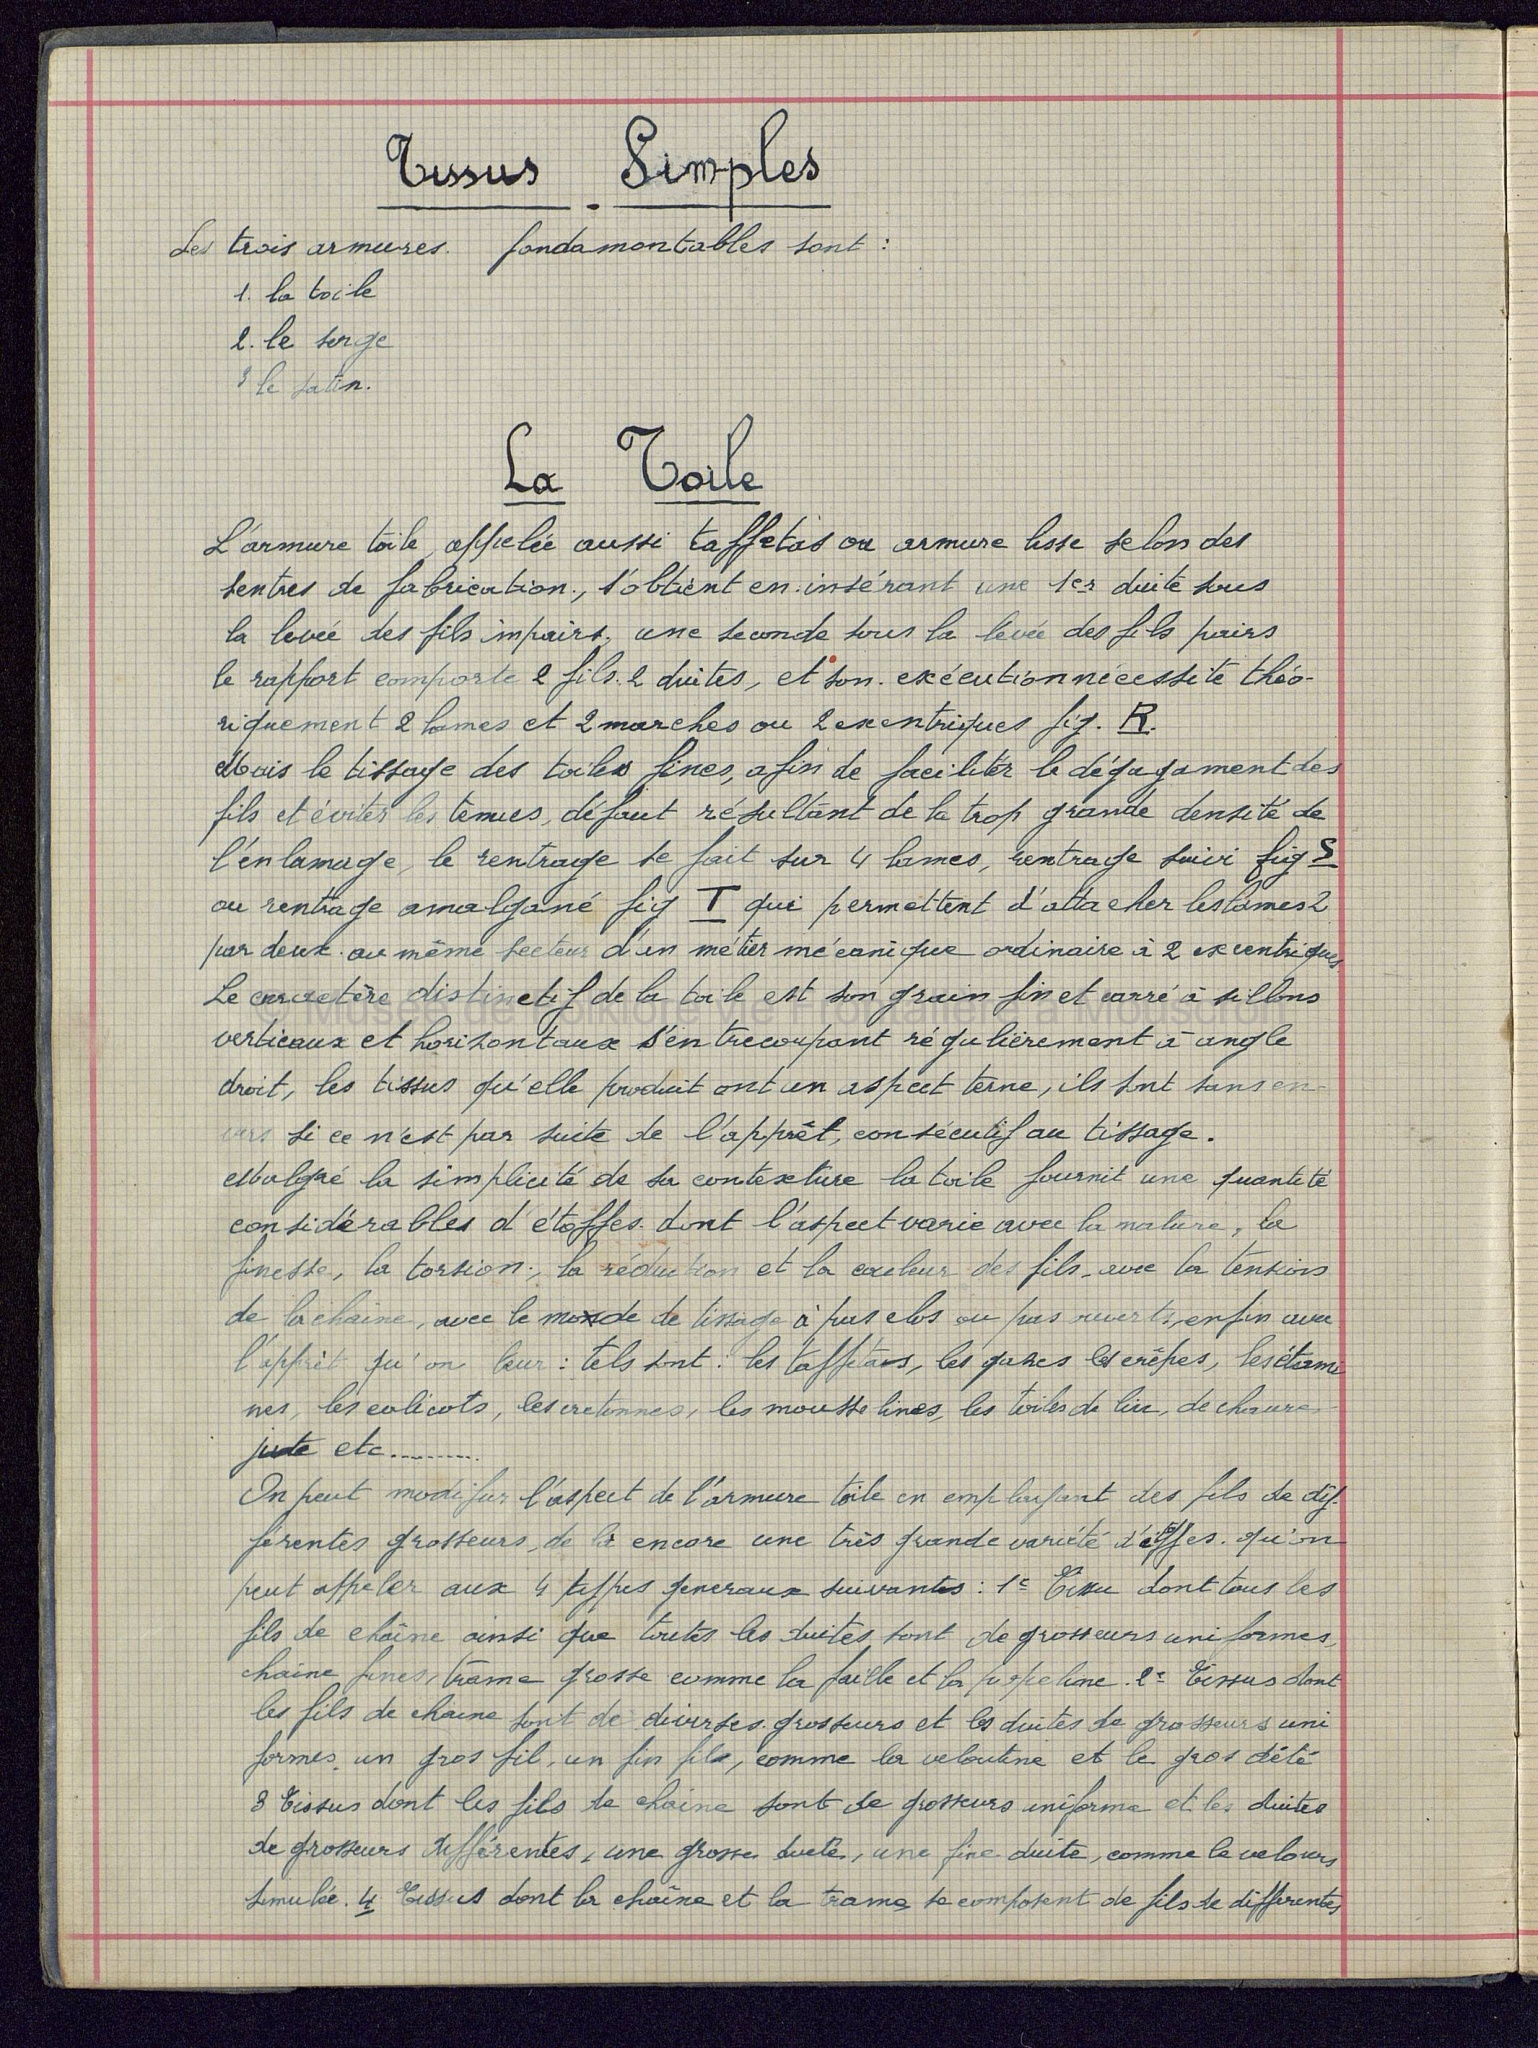 Tissus Simples
Les trois armures. fondamontables sont :
1. la toile
2. le serge
3 le satin.
La Toile
L'armure toile, appelée aussi taffetas ou armure lisse selon des
sentres de fabrication., s'obtient en insérant une 1er duite sous
la levée des fils impairs, une seconde sous la levée des fils pairs
le rapport comporte 2 fils. 2 duites, et son. exécution nécessite théo-
riquement 2 lames et 2 marches ou 2 excentriques fig. R.
Mais le tissage des toiles fines, afin de faciliter le dégagament des
fils et éviter les tenues, défaut résultant de la trop grande densité de
l'enlamage, le rentrage se fait sur 4 lames, rentrage suivi fig S
ou rentrage amalgané fig T qui permettent d'attacher les lames 2
par deux. au même secteur d'un métier mécanique ordinaire à 2 excentriques
Le caractère distinctif de la toile est son grain fin et carré à sillons
verticaux et horizontaux s'entrecoupant régulièrement à angle
droit, les tissus qu'elle produit ont un aspect terne, ils sont sans en-
vers si ce n'est par suite de l'apprêt, consécutif au tissage.
Malgré la simplicité de sa contexture la toile fournit une quantité
considérables d'étoffes. dont l'aspect varie avec la nature, la
finesse, la torsion., la réduction et la couleur des fils, avec la tension
de la chaine, avec le monde de tissage à pas clos ou pas ouverts, enfin avec
l'apprêt qu'on leur : tels sont : les taffetas, les gazes les crêpes, les étami
nes, les calicots, les cretonnes, les mousselines, les toiles de lin, de chanvre
jute etc.........
On peut modifier l'aspect de l'armure toile en employant des fils de dif-
férentes grosseurs, de là encore une très grande variété d'étoffes. qu'on
peut appeler aux 4 types generaux suivants : 1e Tissu dont tous les
fils de chaîne ainsi que toutes les duites sont de grosseurs uniformes,
chaine fines, trame grosse comme la faille et la popeline. 2e Tissus dont
les fils de chaine sont de diverses grosseurs et les duites de grosseurs uni
formes, un gros fil, un fin fils, comme la veloutine et le gros d'été
3 Tissus dont les fils de chaine sont de grosseurs uniforme et les duites
de grosseurs différentes, une grosse duite, une fine duite, comme le velours
simulée. 4 Tissus dont la chaîne et la trame se composent de fils de différentes
© Musée de Folklore vie Frontalière à Mouscron